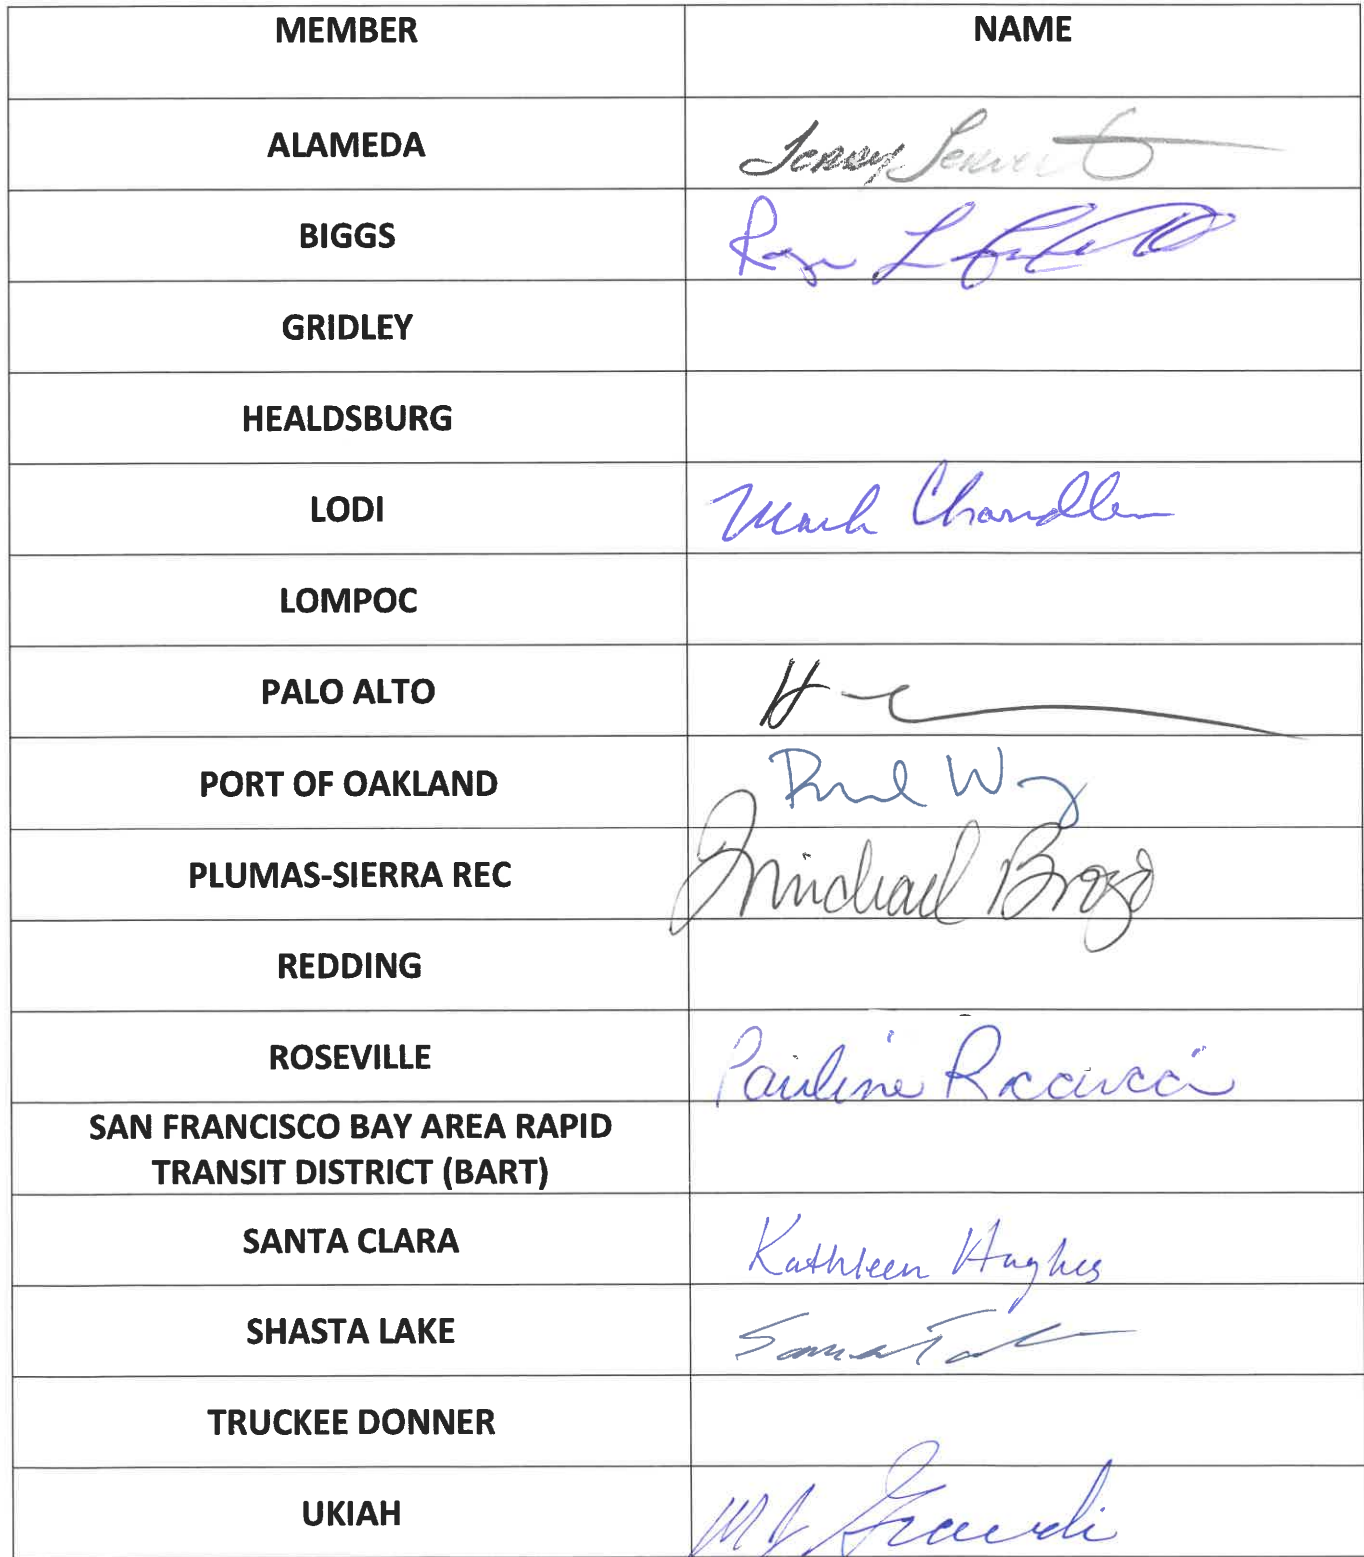 MEMBER NAME
ALAMEDA
BIGGS
GRIDLEY
HEALDSBURG
LODI Mark Chandler
LOMPOC
PALO ALTO
PORT OF OAKLAND
PLUMAS-SIERRA REC Michael Brozo
REDDING
ROSEVILLE Pauline Roccucci
SAN FRANCISCO BAY AREA RAPID
TRANSIT DISTRICT (BART)
SANTA CLARA Kathleen Hughes
SHASTA LAKE
TRUCKEE DONNER
UKIAH